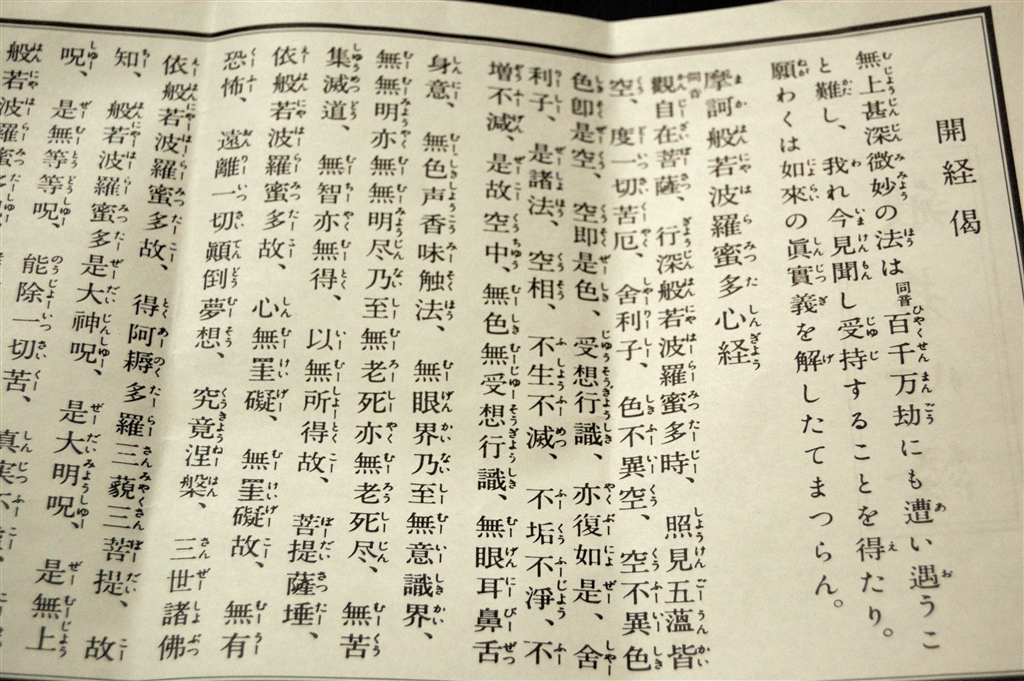 開経偈
無上甚深微妙の法は同音百千万劫にも遭い遇うこ
と難し、我れ今見聞し受持することを得たり。
願わくは如來の眞實義を解したてまつらん。
摩訶般若波羅蜜多心経
同音
觀自在菩薩、行深般若波羅蜜多時、照見五蘊皆
空、度一切苦厄、舍利子、色不異空、空不異色
色卽是空、空卽是色、受想行識、亦復如是、舍
利子、是諸法、空相、不生不滅、不垢不淨、不
増不減、是故空中、無色無受想行識、無眼耳鼻舌
身意、無色声香味触法、無眼界乃至無意識界、
無無明亦無無明尽乃至無老死亦無老死尽、無苦
集滅道、無智亦無得、以無所得故、菩提薩埵、
依般若波羅蜜多故、心無罣礙、無罣礙故、無有
恐怖、遠離一切顚倒夢想、究竟涅槃、三世諸佛
依般若波羅蜜多故、得阿耨多羅三藐三菩提、故
知、般若波羅蜜多是大神呪、是大明呪、是無上
呪、是無等等呪、能除一切苦、真実不
般若波羅蜜